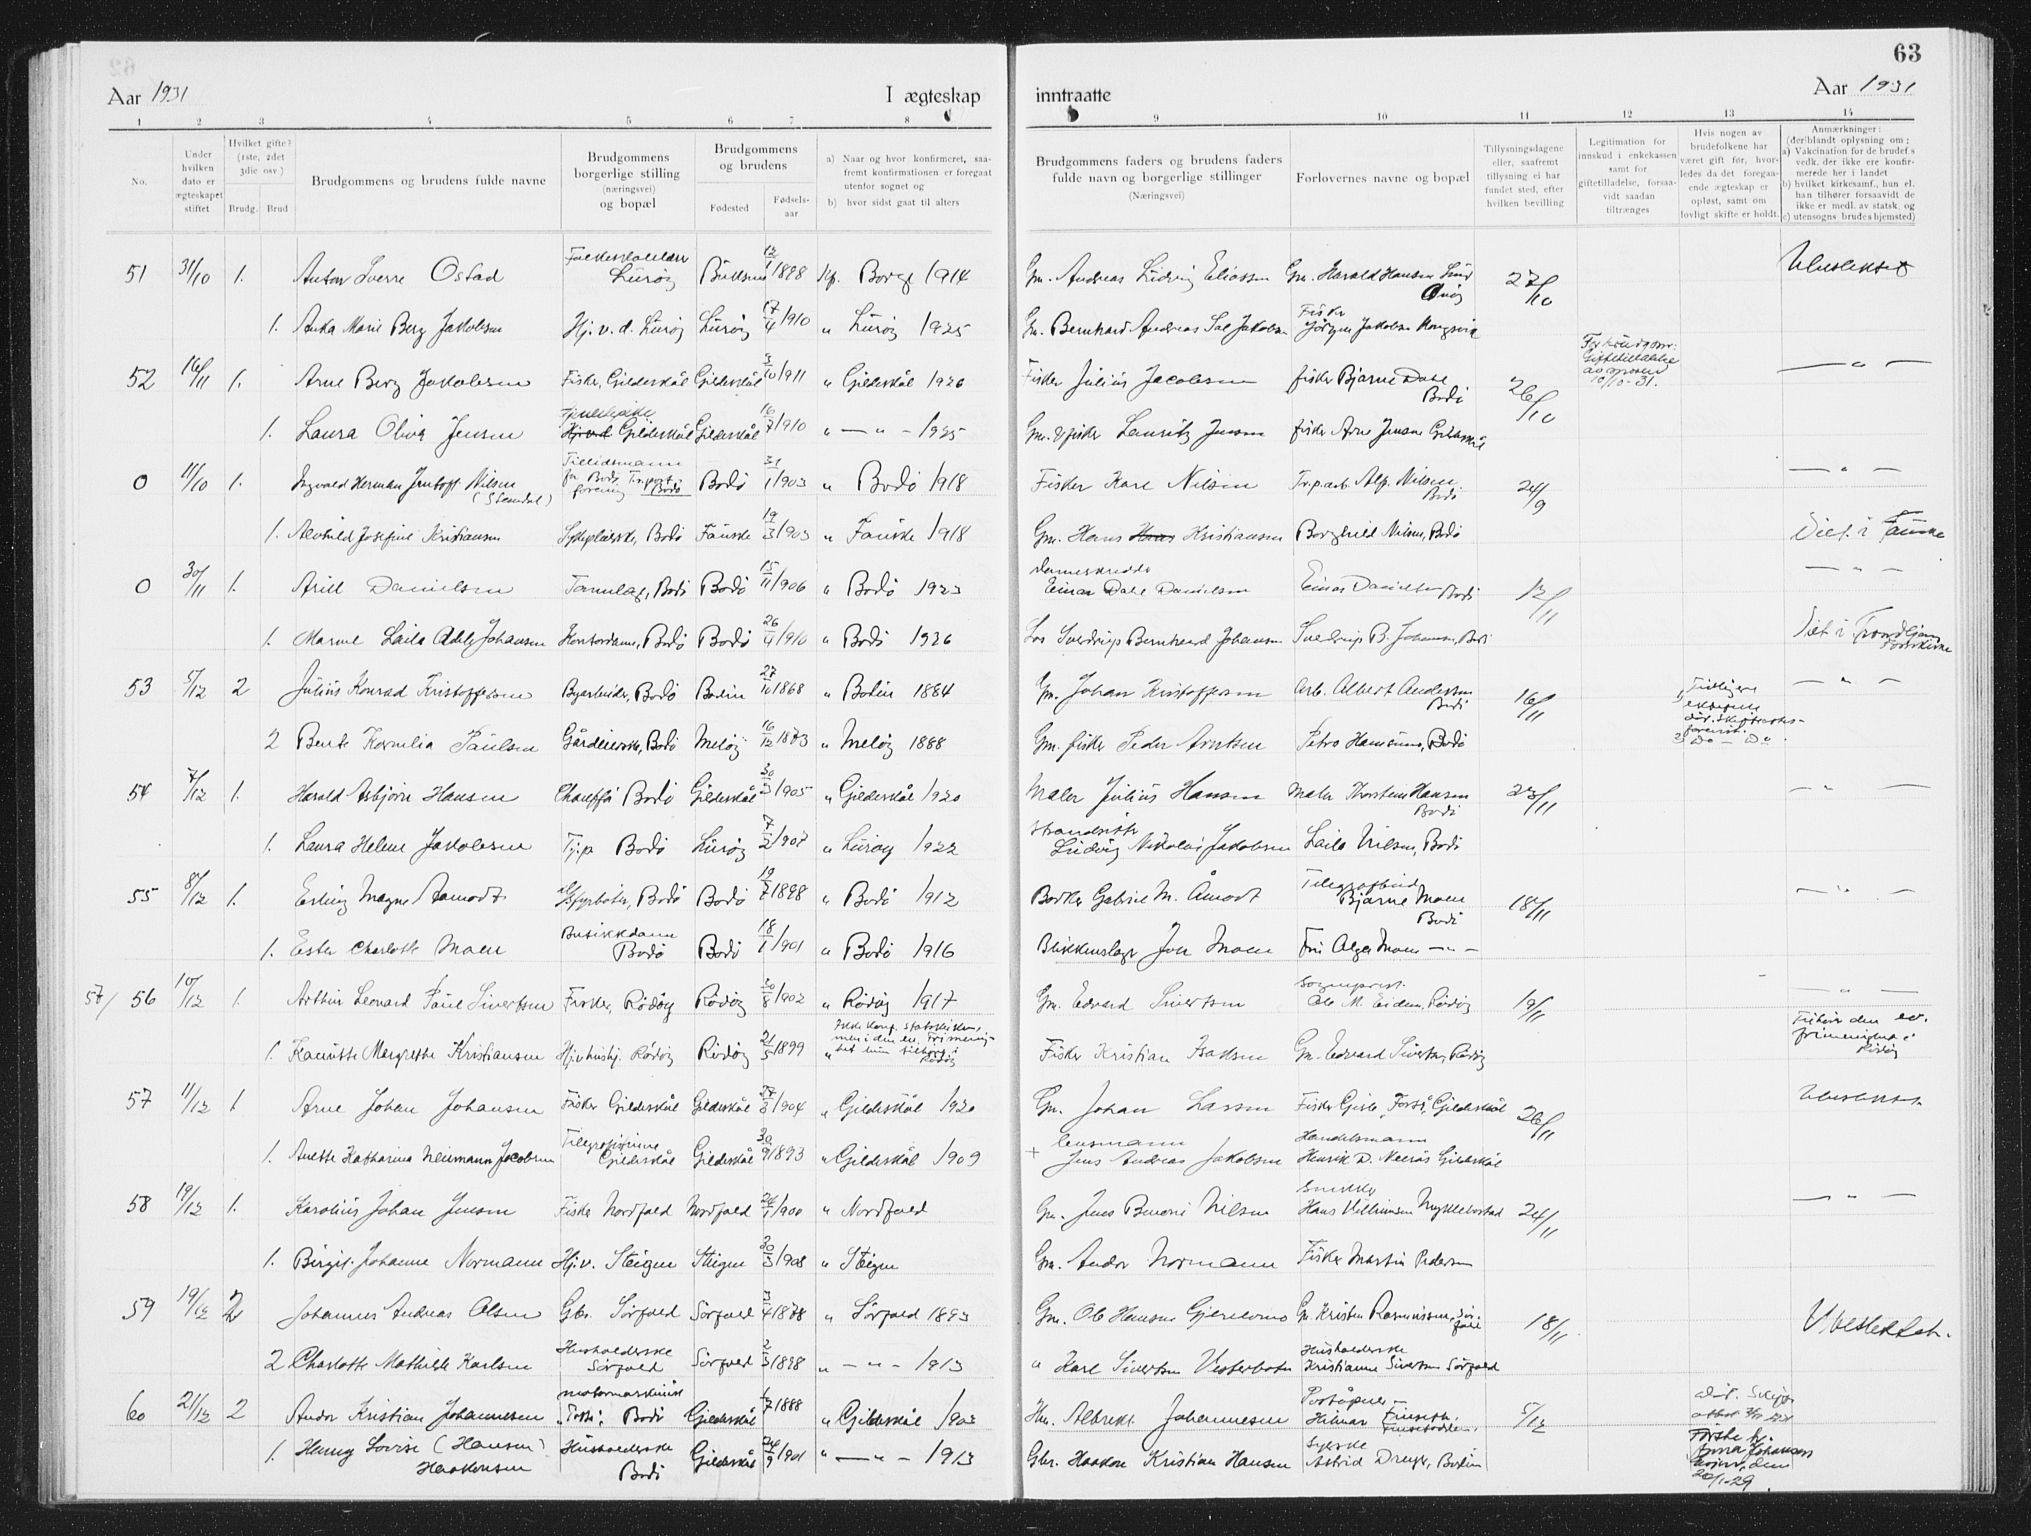 63
Aar 1931 I ægteskap
inntraatte Aar 1931
1 2 3 4 5 6 7 8
9 10 11 12 13 14
No.
Under hvilken dato er ægteskapet stiftet
Hvilket gifte? (1ste, 2det 3die osv.)
Brudg. Brud
Brudgommens og brudens fulde navne
Brudgommens borgerlige stilling (næringsvei) og bopæl
Brudgommens og brudens
Fødested Fødsels-aar
a) Naar og hvor konfirmeret, saa-fremt konfirmationen er foregaat utenfor sognet og
b) hvor sidst gaat til alters
Brudgommens faders og brudens faders fulde navn og borgerlige stillinger (Næringsvei)
Forlovernes navne og bopæl
Tillysningsdagene eller, saafremt tillysning ei har fundet sted, efter hvilken bevilling
Legitimation for innskud i enkekassen samt for giftetilladelse, forsaa-vidt saadan tiltrænges
Hvis nogen av brudefolkene har været gift før, hvor-ledes da det foregaa-ende ægteskap er opløst, samt om lovligt skifte er holdt.
Anmærkninger: (deriblandt oplysning om;
a) Vakcination for de brudef.s vedk. der ikke ere konfir-merede her i landet
b) hvilket kirkesamf., hun el. han tilhører forsaavidt de ikke er medl. av statsk. og
c) utensogns brudes hjemsted)
51 31/10 1. Anton Sverre Ostad Lurøy Buksnes 13/1 1898 Kp. Borge 1914 Gm. Andreas Ludvig Eliassen Gm. Harald Hansen 27/10 Ubeslektet
1. Anka Marie Berg Jakobsen Hj. v. d. Lurøy Lurøy 17/4 1910 " Lurøy 1925 Gm. Bernhard Andreas Sal Jakobsen Fisker Jørgen Jakobsen
52 16/11 1. Arne Berg Jakobsen Fisker, Gildeskål Gildeskål 3/10 1911 " Gildeskål 1926 Fisker Julius Jacobsen fisker Bjarne Dahl Bodø 26/10 10/10-31. — " —
1. Laura Oliva Jensen Gildeskål Gildeskål 16/7 1910 " — " — 1925 Gm. & fisker Lauritz Jensen fisker Arne Jensen Gildeskål
0 11/10 1. Ingvald Herman Jentoft Nilsen (Stendal) Tillidsmann for Bodø Trsport forening Bodø Bodø 31/1 1903 " Bodø 1918 Fisker Karl Nilsen Trsp.arb. Alf. Nilsen Bodø 24/9 — " —
1. Alvhild Josefine Kristiansen Sykepleierske, Bodø Fauske 19/3 1903 " Fauske 1918 Gm. Hans Kristiansen Borghild Nilsen, Bodø Viet i Fauske
0 30/11 1. Arild Danielsen Bodø Bodø 15/11 1906 " Bodø 1923 Einar Dahl Danielsen Einar Danielsen Bodø 12/11 — " —
1. Laila Adele Johansen Kontordame, Bodø Bodø 26/4 1910 " Bodø 1926 Los Sverdrup Bernhard Johansen Sverdrup B. Johansen, Bodø Viet i Trondhjem Domkirke
53 5/12 2 Julius Konrad Kristoffersen Byarbeider, Bodø Bodin 27/10 1868 " Bodin 1884 Gm. Johan Kristoffersen Arb. Albert Andersen Bodø 16/11 — " —
2 Bente Kornelia Paulsen Gårdeierske, Bodø Meløy 16/12 1873 " Meløy 1888 Gm. fisker Peder Arntsen Petra Hansen, Bodø
54 7/12 1. Harald Asbjørn Hansen Chauffør Bodø Gildeskål 30/3 1905 " Gildeskål 1920 Maler Julius Hansen Maler Thorstein Hansen Bodø 23/11 — " —
1. Laura Helene Jakobsen Tj.p. Bodø Lurøy 7/2 1907 " Lurøy 1922 Strandsitter Ludvig Nikolai Jakobsen Laila Nilsen, Bodø
55 8/12 1. Erling Magnus Aamodt Bodø Bodø 19/7 1898 " Bodø 1912 Bødker Gabriel M. Åmodt Telegrafbud Bjarne Moen Bodø 18/11 — " —
1. Ester Charlotte Moen Butikkdame Bodø Bodø 18/1 1901 " Bodø 1916 Blikkenslager Jon Moen Fru Olga Moen — " —
57/ 56 10/12 1. Arthur Leonard Paul Sivertsen Fisker, Rødøy Rødøy 30/8 1902 " Rødøy 1917 Gm. Edvard Sivertsen Sogneprest Ole M. Eidem, Rødøy 19/11
1. Kanutte Margrethe Kristiansen Rødøy Rødøy 21/5 1899 Ikke konf. statskirken, men i den ev. frimenig- Rødøy Fisker Kristian Isaksen Gm. Edvard Sivertsen, Rødøy Tilhører den ev. frimenighet i Rødøy
57 11/12 1 Arne Johan Johansen Fisker Gildeskål Gildeskål 27/8 1904 " Gildeskål 1920 Gm. Johan Larsen Gildeskål 26/11 Ubeslektet.
1. Anette Katharina Neumann Jacobsen Gildeskål Gildeskål 30/9 1893 " Gildeskål 1909 + lensmann Jens Andreas Jakobsen Handelsmann Henrik D. Neerås Gildeskål
58 19/12 1. Karolius Johan Jensen Fisker Nordfold Nordfold 24/1 1900 " Nordfold Gm. Jens Benoni Nilsen Snekker Hans Vilhumsen Myklebostad 24/11 — " —
1. Birgit Johanne Normann Hj.v. Steigen Steigen 30/3 1908 " Steigen Gm. Andor Normann Fisker Martin Pedersen
59 19/12 2 Johannes Andreas Olsen Gbr. Sørfold Sørfold 3/4 1878 " Sørfold 1893 Gm. Ole Hansen Gjerelvmo Gm. Kristen Rasmussen, Sør-fold 18/11 Ubeslektet.
2 Charlotte Mathilde Karlsen Husholderske Sørfold Sørfold 2/3 1898 " — " — 1913 " Karl Sivertsen Vesterbotn Husholderske Kristianne Sivertsen Sørfold
60 21/12 2 Andor Kristian Johannesen motormaskinist Bodø Gildeskål 1/7 1888 " Gildeskål 1903 Hm. Albrikt Johannesen Poståpner Hilmar Finseth 5/12
1. Henny Lovise (Hansen) Haakonsen Husholderske Bodø Gildeskål 24/9 1901 " — " — 1913 Gbr. Haakon Kristian Hansen Syerske Astrid Dreyer, Bodin Første h. Anna Johansen 20/1-29.